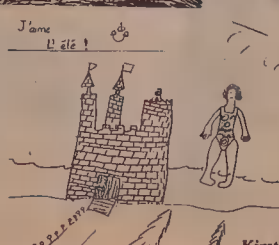 J'aime
L'été !